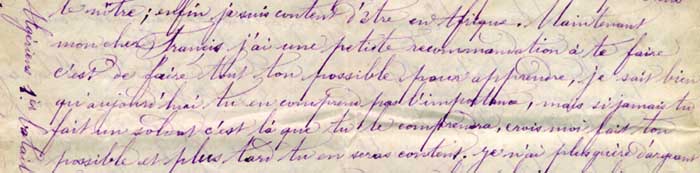 le nôtre; enfin je suis content d'être en Afrique. Maintenant
mon cher Francis j'ai une petite recommandation à te faire
c'est de faire tout ton possible pour apprendre, je sait bien
qu'aujourd'hui tu en comprend pas l'importance, mais si jamais tu
fait un soldat c'est là que tu le comprendra, crois moi fait ton
possible et plus tard tu en seras content. je n'ai plus guère d'argent
Algériens 1er Batail